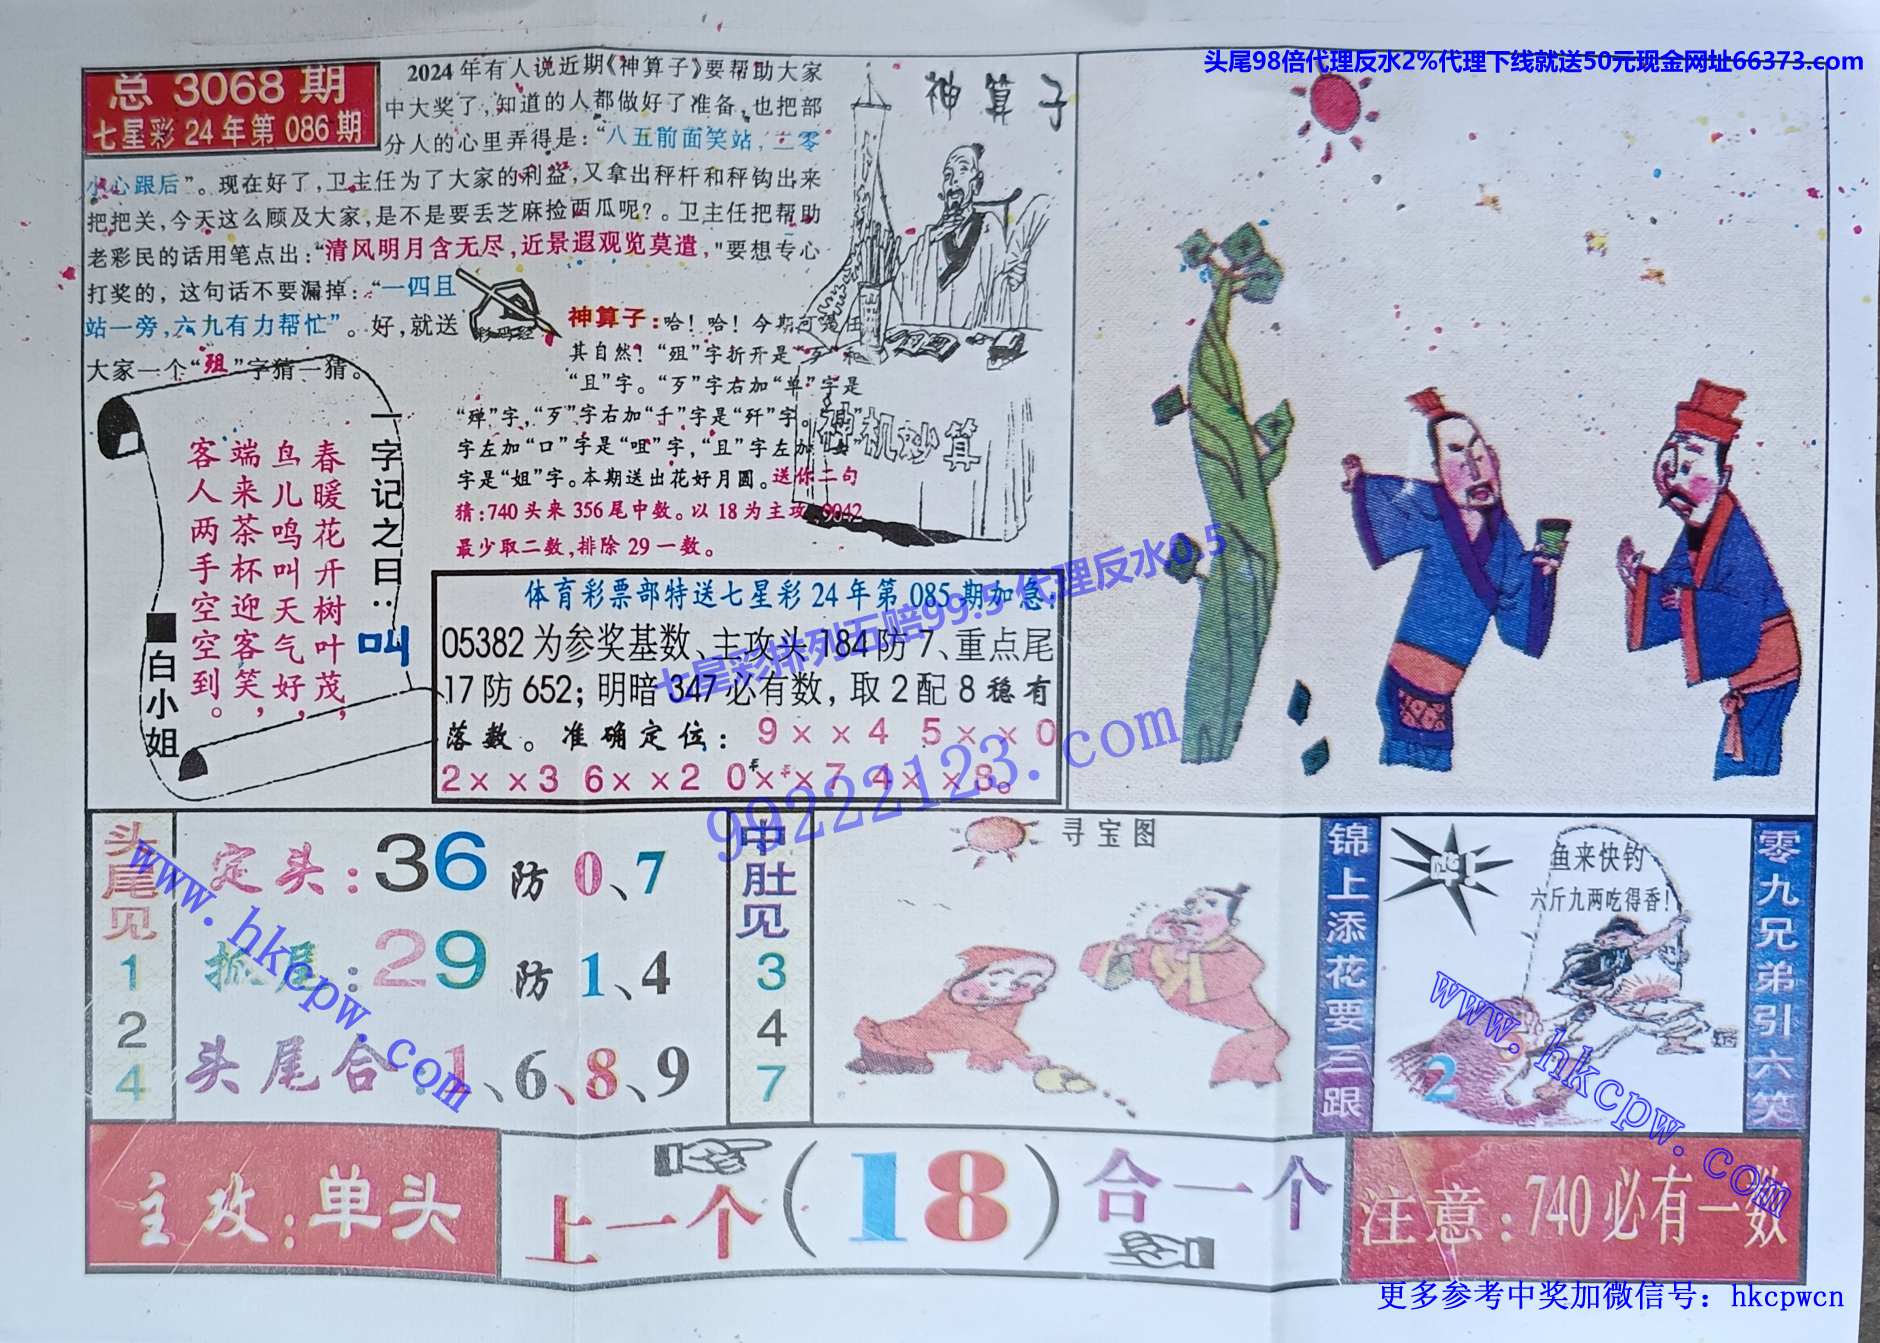 头尾98倍代理反水2%代理下线就送50元现金网址66373.com
总 3068 期
七星彩 24 年第 086 期
2024 年有人说近期《神算子》要帮助大家
中大奖了,知道的人都做好了准备,也把部
分人的心里弄得是:“八五前面笑站,二零
小心跟后”。现在好了,卫主任为了大家的利益,又拿出秤杆和秤钩出来
把把关,今天这么顾及大家,是不是要丢芝麻捡西瓜呢?。卫主任把帮助
老彩民的话用笔点出:“清风明月含无尽,近景遐观览莫遣,"要想专心
打奖的,这句话不要漏掉:“一四且
站一旁,六九有力帮忙”。好,就送
大家一个“殂”字猜一猜。
彩码经
神算子
神算子:哈!哈!今期可须任
其自然!“殂”字折开是“歹”和
“且”字。“歹”字右加“单”字是
“殚”字,“歹”字右加“千”字是“歼”字。“且”
字左加“口”字是“咀”字,“且”字左加“女”
字是“姐”字。本期送出花好月圆。送你二句
猜:740 头来 356 尾中数。以 18 为主攻,9042
最少取二数,排除 29 一数。
神机妙算
一字记之曰:叫
春暖花开树叶茂,
鸟儿鸣叫天气好,
端来茶杯迎客笑,
客人两手空空到。
■白小姐
体育彩票部特送七星彩 24 年第 085 期加急:
05382 为参奖基数、主攻头 184 防 7、重点尾
17 防 652；明暗 347 必有数，取 2 配 8 稳有
落数。准确定位：9××4 5××0
2××3 6××2 0××7 4××8。
七星彩排列五赔99.5 代理反水0.5
99222123.com
头尾见
1
2
4
定头:36 防 0、7
抓尾:29 防 1、4
头尾合:1、6、8、9
www.hkcpw.com
中肚见
3
4
7
寻宝图
锦上添花要三跟
鱼来快钓
六斤九两吃得香!
2
零九兄弟引六笑
www.hkcpw.com
主攻:单头
上一个(18)合一个
注意:740 必有一数
更多参考中奖加微信号：hkcpwcn